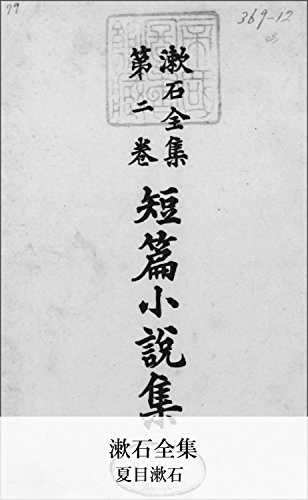 79
369-12
漱石全集
第二卷
短篇小說集
漱石全集
夏目漱石